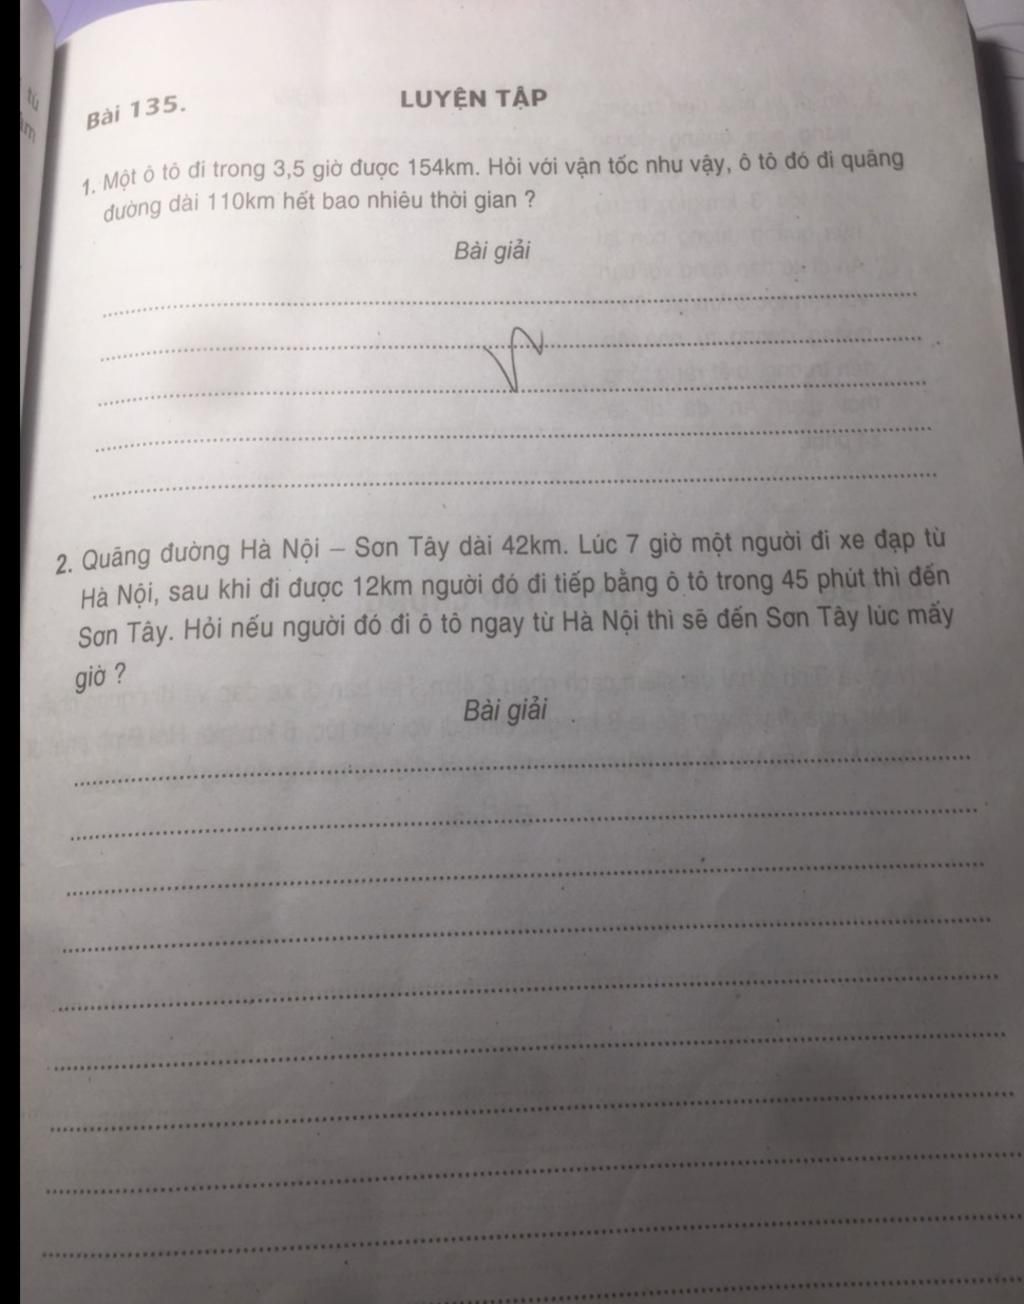 tú
Bài 135.
LUYỆN TẬP
1. Một ô tô đi trong 3,5 giờ được 154km. Hỏi với vận tốc như vậy, ô tô đó đi quãng
đường dài 110km hết bao nhiêu thời gian ?
Bài giải
2. Quãng đường Hà Nội – Sơn Tây dài 42km. Lúc 7 giờ một người đi xe đạp từ
Hà Nội, sau khi đi được 12km người đó đi tiếp bằng ô tô trong 45 phút thì đến
Sơn Tây. Hỏi nếu người đó đi ô tô ngay từ Hà Nội thì sẽ đến Sơn Tây lúc mấy
giờ ?
Bài giải